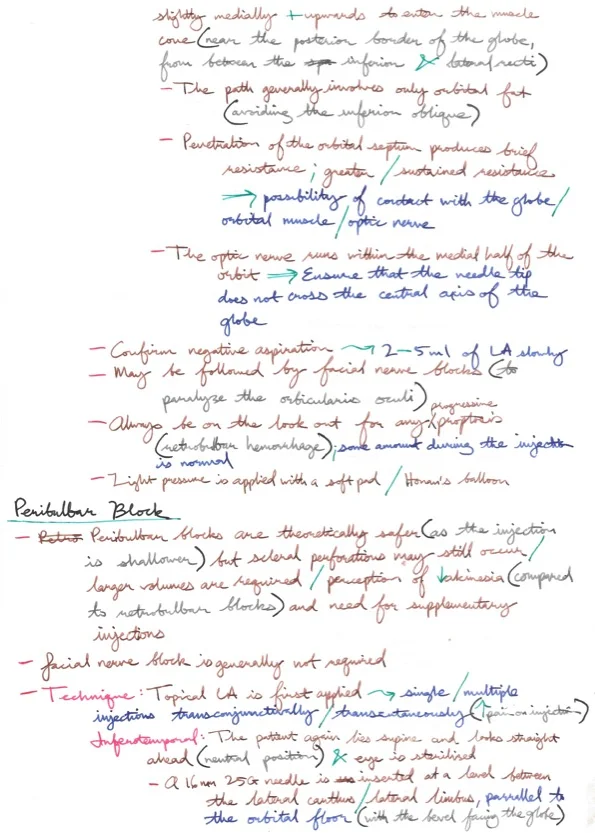 slightly medially + upwards to enter the muscle
cone (near the posterior border of the globe,
from between the inferior & lateral recti)
- The path generally involves only orbital fat
(avoiding the inferior oblique)
- Penetration of the orbital septum produces brief
resistance; greater / sustained resistance
⇒ possibility of contact with the globe /
orbital muscle / optic nerve
- The optic nerve runs within the medial half of the
orbit ⇒ Ensure that the needle tip
does not cross the central axis of the
globe
- Confirm negative aspiration → 2-5 ml of LA slowly
- May be followed by facial nerve blocks (to
paralyze the orbicularis oculi)
- Always be on the look out for any progressive proptosis
(retrobulbar hemorrhage); some amount during the injection
is normal
- Light pressure is applied with a soft pad / Honan's balloon
Peribulbar Block
- Retro Peribulbar blocks are theoretically safer (as the injection
is shallower) but scleral perforations may still occur /
larger volumes are required / perception of ↓akinesia (compared
to retrobulbar blocks) and need for supplementary
injections
- facial nerve block is generally not required
- Technique: Topical LA is first applied → single / multiple
injections transconjunctivally / transcutaneously (↑pain on injection)
Inferotemporal: The patient again lies supine and looks straight
ahead (neutral position) & eye is sterilised
- A 16mm 25G needle is inserted at a level between
the lateral canthus / lateral limbus, parrallel to
the orbital floor (with the bevel facing the globe)